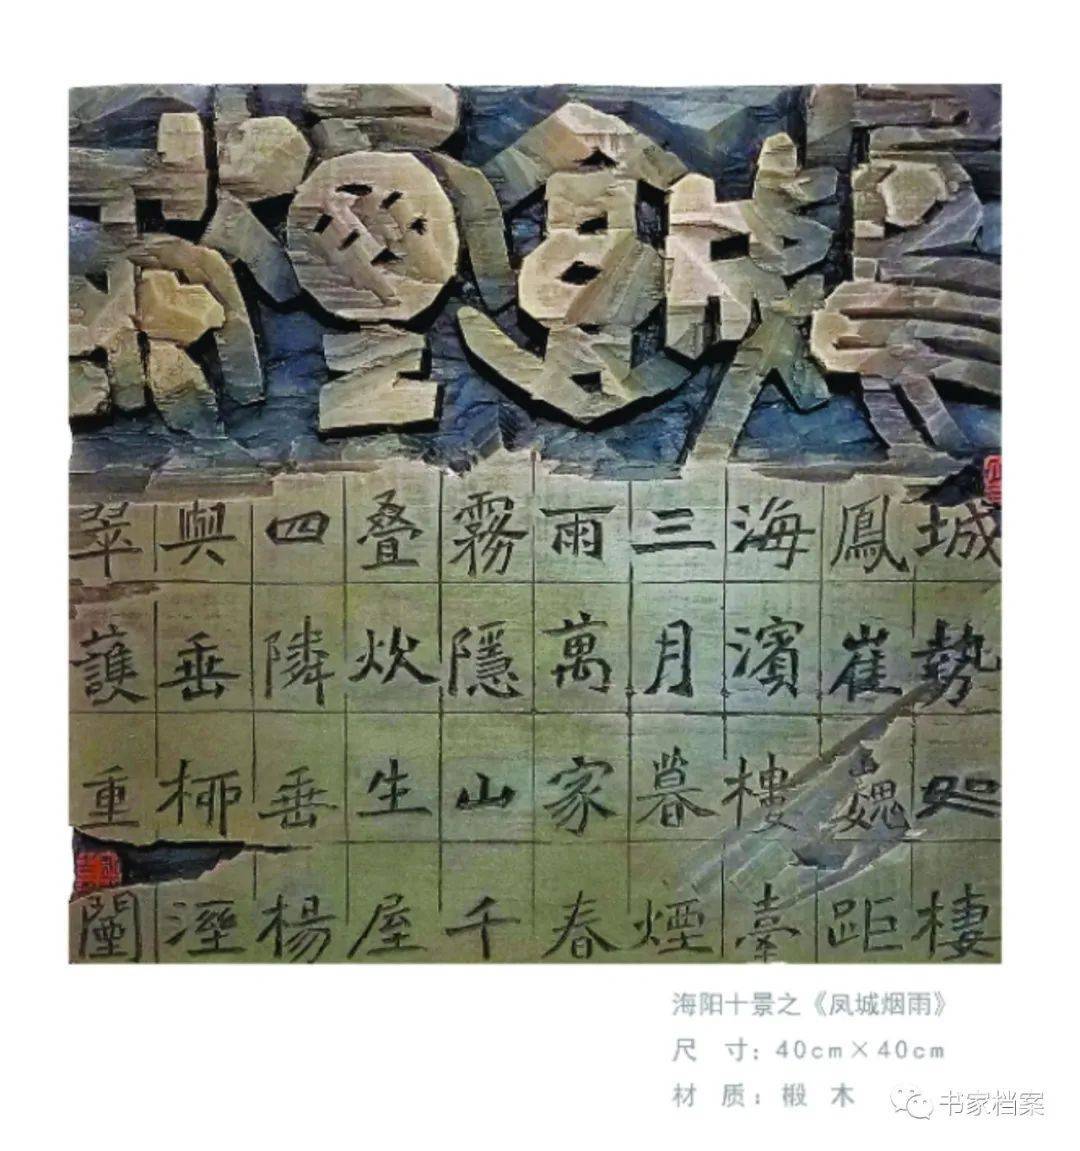 城勢如棲
鳳崔巍距
海濱樓臺
三月暮煙
雨萬家春
霧隱山千
叠炊生屋
四隣垂楊
與垂柳溼
翠護重闉
海阳十景之《凤城烟雨》
尺 寸：40cm×40cm
材 质：椴 木
书家档案